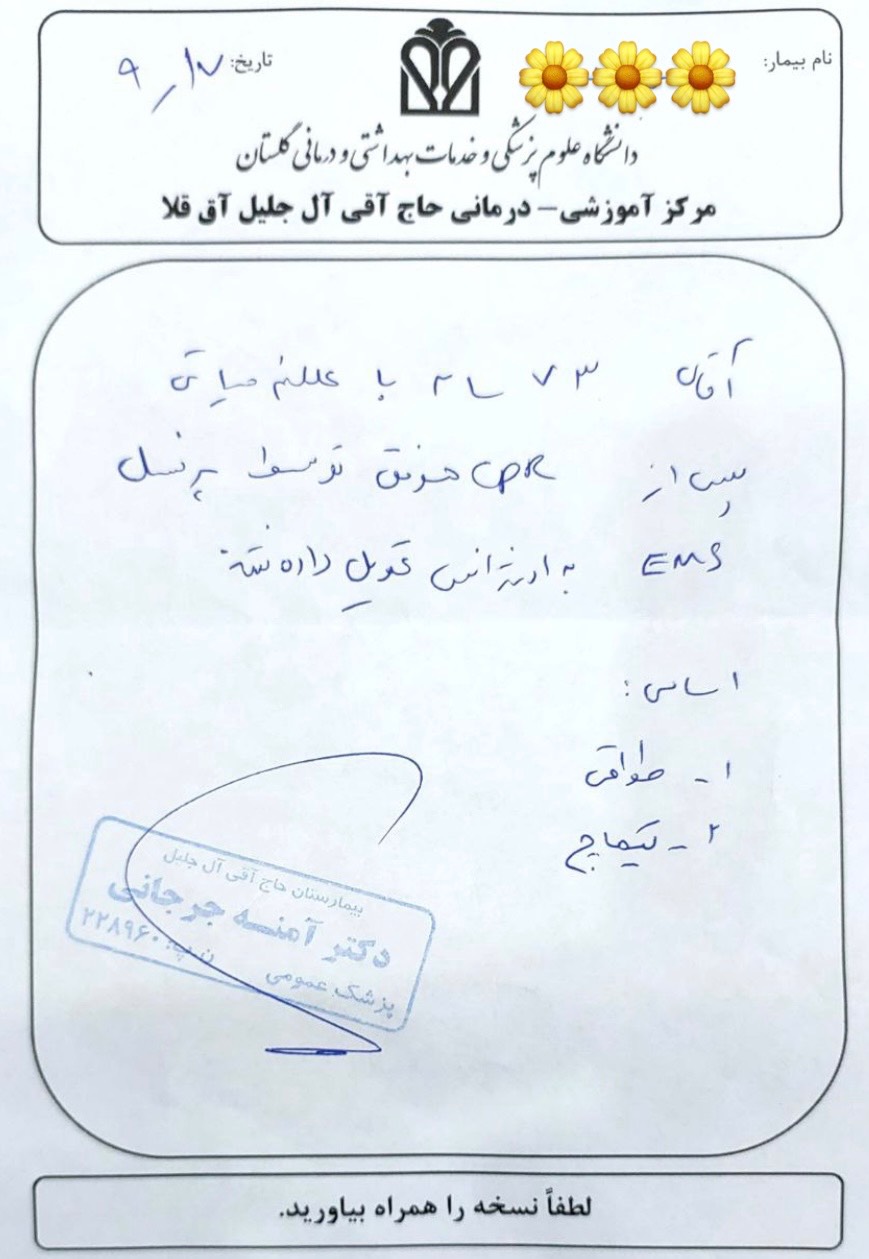 نام بیمار:
تاریخ: ۹/۱۷
دانشگاه علوم پزشکی و خدمات بهداشتی و درمانی گلستان
مرکز آموزشی – درمانی حاج آقی آل جلیل آق قلا
آقای ۷۳ ساله با علائم حیاتی
پس از CPR موفق توسط پرسنل
EMS به اورژانس تحویل داده شد.
اسامی:
۱ - طواقی
۲ -
بیمارستان حاج آقی آل جلیل
دکتر آمنه جرجانی
پزشک عمومی ن.پ: ۲۲۸۹۶۰
لطفاً نسخه را همراه بیاورید.